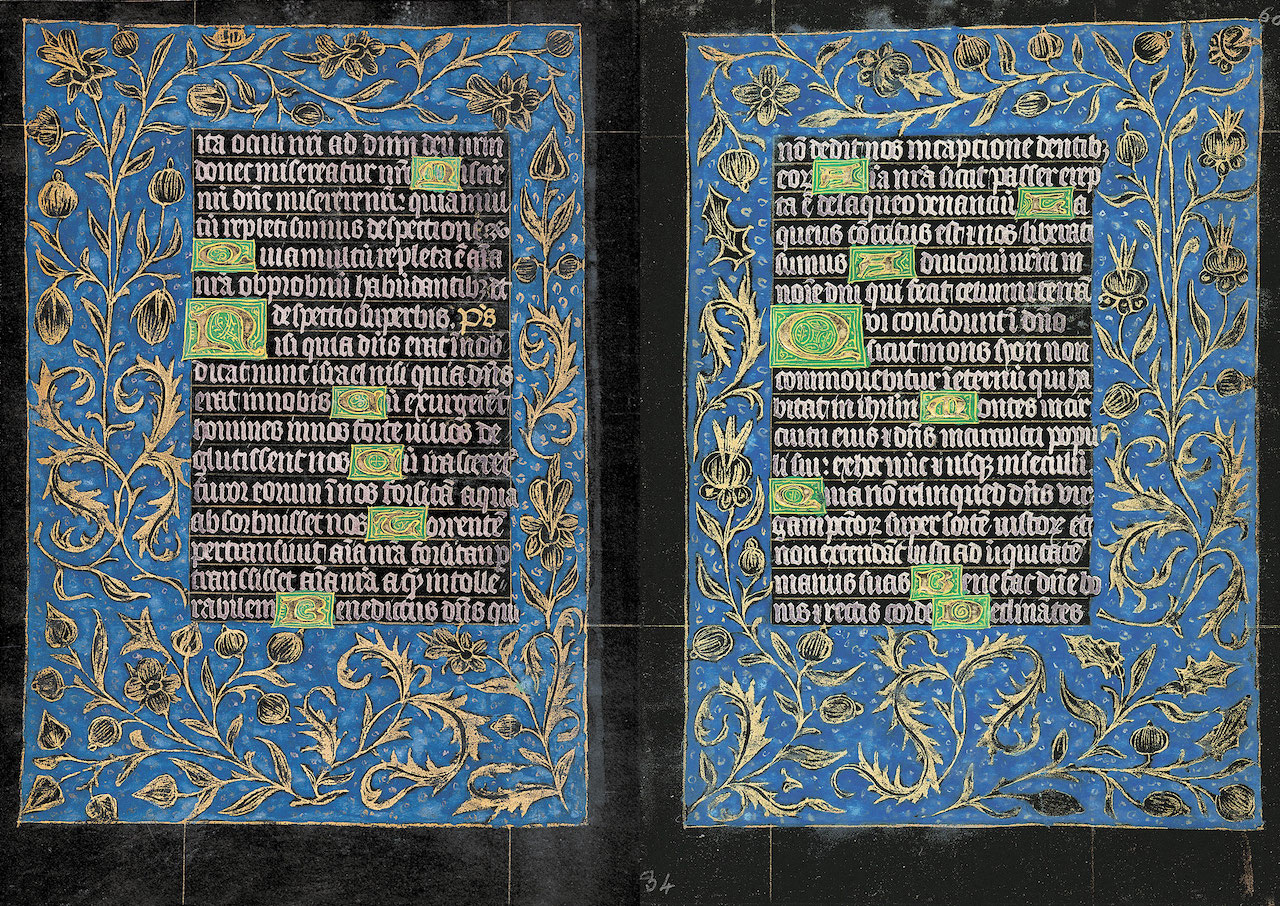 ita oculi nr̄i ad dnm̄ deū nr̄m
donec misereatur nr̄i Miserē
nr̄i dn̄e miserere nr̄i: quia mul
tū repleti sumus despectione
Quia multū repleta ē aīa
nr̄a obprobriū habūdantibz et
despectio superbis. ps̄
Nisi quia dn̄s erat ī nob
dicat nunc israel nisi quia dn̄s
erat in nobis Cū exurgerēt
homines in nos forte uiuos de
glutissent nos Cū irasceret
furor eorum ī nos forsitā aqua
absorbuisset nos Torrentē
pertransiuit aīa nr̄a forsitan p
transisset aīa nr̄a aqm̄ intolle
rabilem Benedictus dn̄s qui
nō dedit nos in captione dentib
eor Aīa nr̄a sicut passer erep
ta ē de laqueo venantiū La
queus cōtritus est et nos liberati
sumus Adiutoriū nr̄m in
noīe dn̄i qui fecit celum et terrā
Qui confidunt ī dn̄o
sicut mons syon non
commouebitur ī eternū qui ha
bitat in ihrlm̄ Montes in cir
cuitu eius et dn̄s in circuitu popu
li sui: ex hoc nūc et usqz in seculū
Quia nō relinqued dn̄s vir
gam pctōrz super sortē iustorz
non extendāt iusti ad iniquitatē
manus suas Benefac dn̄e bo
nis et rectis corde Declinātes
34
60